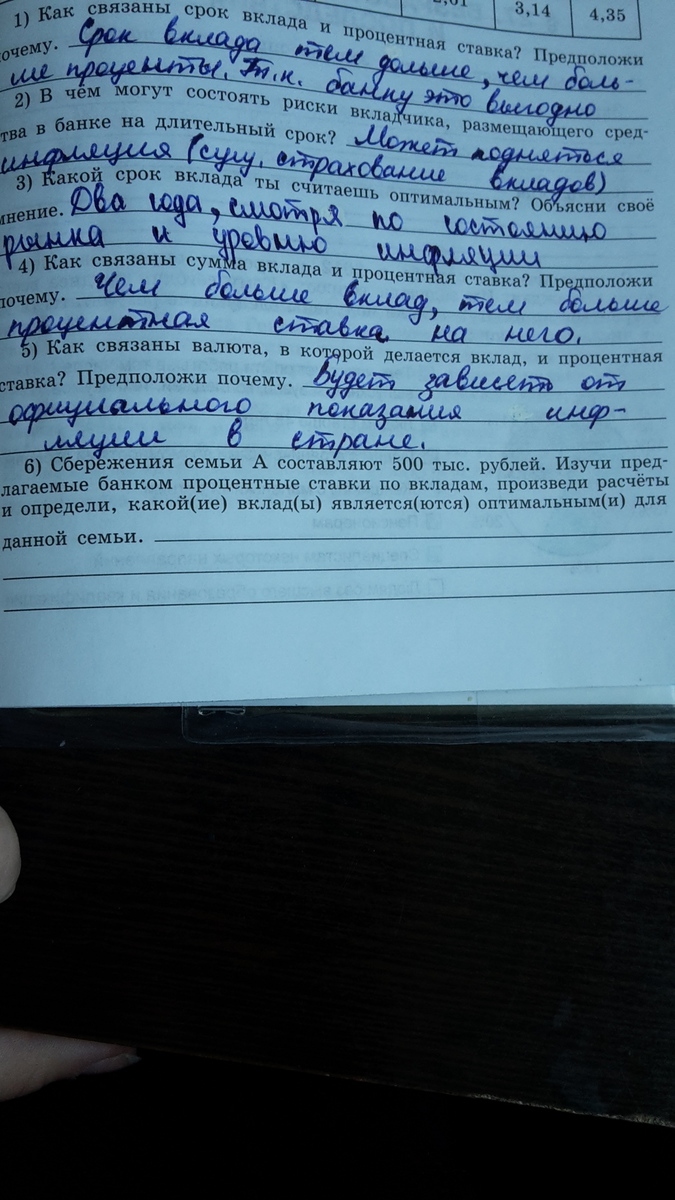 3,14 4,35
1) Как связаны срок вклада и процентная ставка? Предположи
почему. Срок вклада тем дольше, чем боль-
ше проценты. Т.к. банку это выгодно
2) В чём могут состоять риски вкладчика, размещающего сред-
тва в банке на длительный срок? Может подняться
инфляция (сущ. страхование вкладов)
3) Какой срок вклада ты считаешь оптимальным? Объясни своё
мнение. Два года, смотря по состоянию
рынка и уровню инфляции
4) Как связаны сумма вклада и процентная ставка? Предположи
почему. Чем больше вклад, тем больше
процентная ставка на него.
5) Как связаны валюта, в которой делается вклад, и процентная
ставка? Предположи почему. Будет зависеть от
официального показания инф-
ляции в стране.
6) Сбережения семьи А составляют 500 тыс. рублей. Изучи пред-
лагаемые банком процентные ставки по вкладам, произведи расчёты
и определи, какой(ие) вклад(ы) является(ются) оптимальным(и) для
данной семьи.